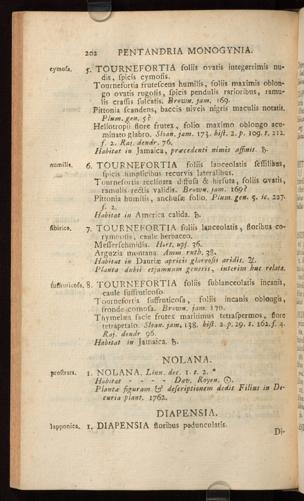 202 PENTANDRIA MONOGYNIA.
cymosa. 5. TOURNEFORTIA foliis ovatis integerrimis nu-
dis, spicis cymosis.
Tournefortia frutescens humilis, foliis maximis oblon-
go ovatis rugosis, spicis pendulis rarioribus, ramu-
lis crassis sulcatis. Brown. jam. 169.
Pittonia scandens, baccis niveis nigris maculis notatis.
Plum. gen. 5?
Heliotropii flore frutex, folio maximo oblongo acu-
minato glabro. Sloan. jam. 173. hist. 2. p. 109. t. 212.
f. 2. Raj. dendr. 76.
Habitat in Jamaica, præcedenti nimis affinis. ♄.
humilis. 6. TOURNEFORTIA foliis lanceolatis sessilibus,
spicis simplicibus recurvis lateralibus.
Tournefortia reclinata diffusa & hirsuta, foliis ovatis,
ramulis rectis validis. Brown. jam. 169?
Pittonia humilis, anchusæ folio. Plum. gen. 5. ic. 227.
f. 2.
Habitat in America calida. ♄.
sibirica. 7. TOURNEFORTIA foliis lanceolatis, floribus co-
rymbosis, caule herbaceo.
Messerschmidia. Hort. ups. 36.
Arguzia montana. Amm. ruth. 38.
Habitat in Dauriæ apricis glareosis aridis. ♃.
Planta dubii etjamnum generis, interim huc relata.
suffruticosa. 8. TOURNEFORTIA foliis sublanceolatis incanis,
caule suffruticoso.
Tournefortia suffruticosa, foliis incanis oblongis,
fronde comosa. Brown. jam. 170.
Thymelææ facie frutex maritimus tetraspermos, flore
tetrapetalo. Sloan. jam. 138. hist. 2. p. 29. t. 162. f. 4.
Raj. dendr. 96.
Habitat in Jamaica. ♄.
NOLANA.
prostrata. 1. NOLANA. Linn. dec. 1. t. 2. *
Habitat - - - - Dav. Royen. ☉.
Plantæ figuram & descriptionem dedit Filius in De-
curia plant. 1762.
DIAPENSIA.
lapponica. 1. DIAPENSIA floribus pedunculatis.
Di-